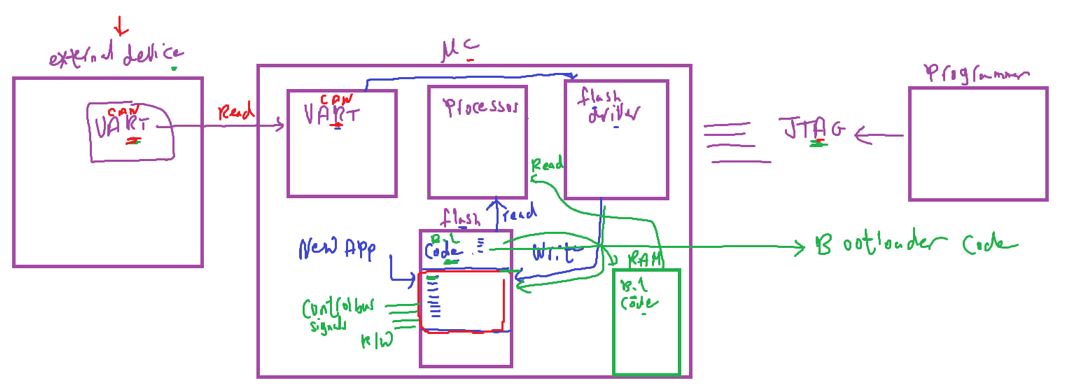 external device
CAN
UART
Read
MC
CAN
UART
Processor
flash
driver
JTAG
Programmer
Read
flash
read
New App
B.L
Code
Write
Bootloader Code
RAM
B.L
Code
Control bus
signals
R/W